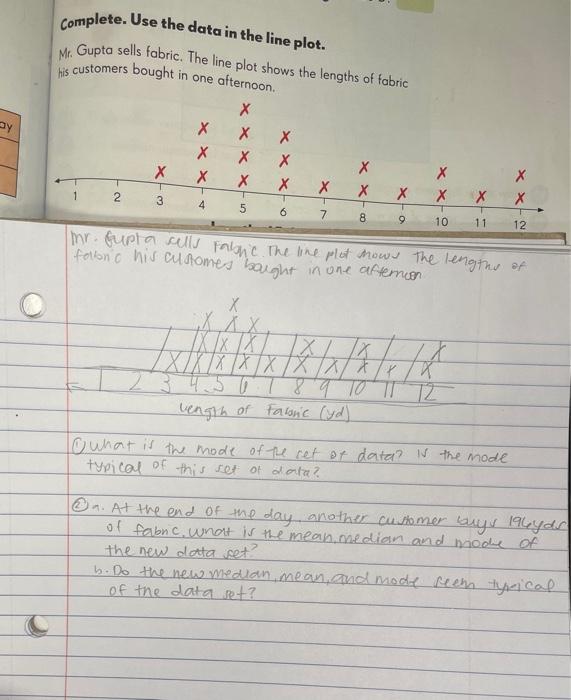 Complete. Use the data in the line plot.
Mr. Gupta sells fabric. The line plot shows the lengths of fabric
his customers bought in one afternoon.
ay
X
X X X
X X X
X X X X X X
X X X X X X X X X X
1 2 3 4 5 6 7 8 9 10 11 12
Mr. Gupta sells Fabric. The line plot shows The Lengths of
fabric his customers bought in one afternoon
X
X X X
X X X X X X
X X X X X X X X X X
1 2 3 4 5 6 7 8 9 10 11 12
Length of Fabric (yd)
① What is the mode of the set of data? Is the mode
typical of this set of data?
② a. At the end of the day, another customer buys yds
of fabric. What is the mean, median and mode of
the new data set?
b. Do the new median, mean, and mode seem typical
of the data set?